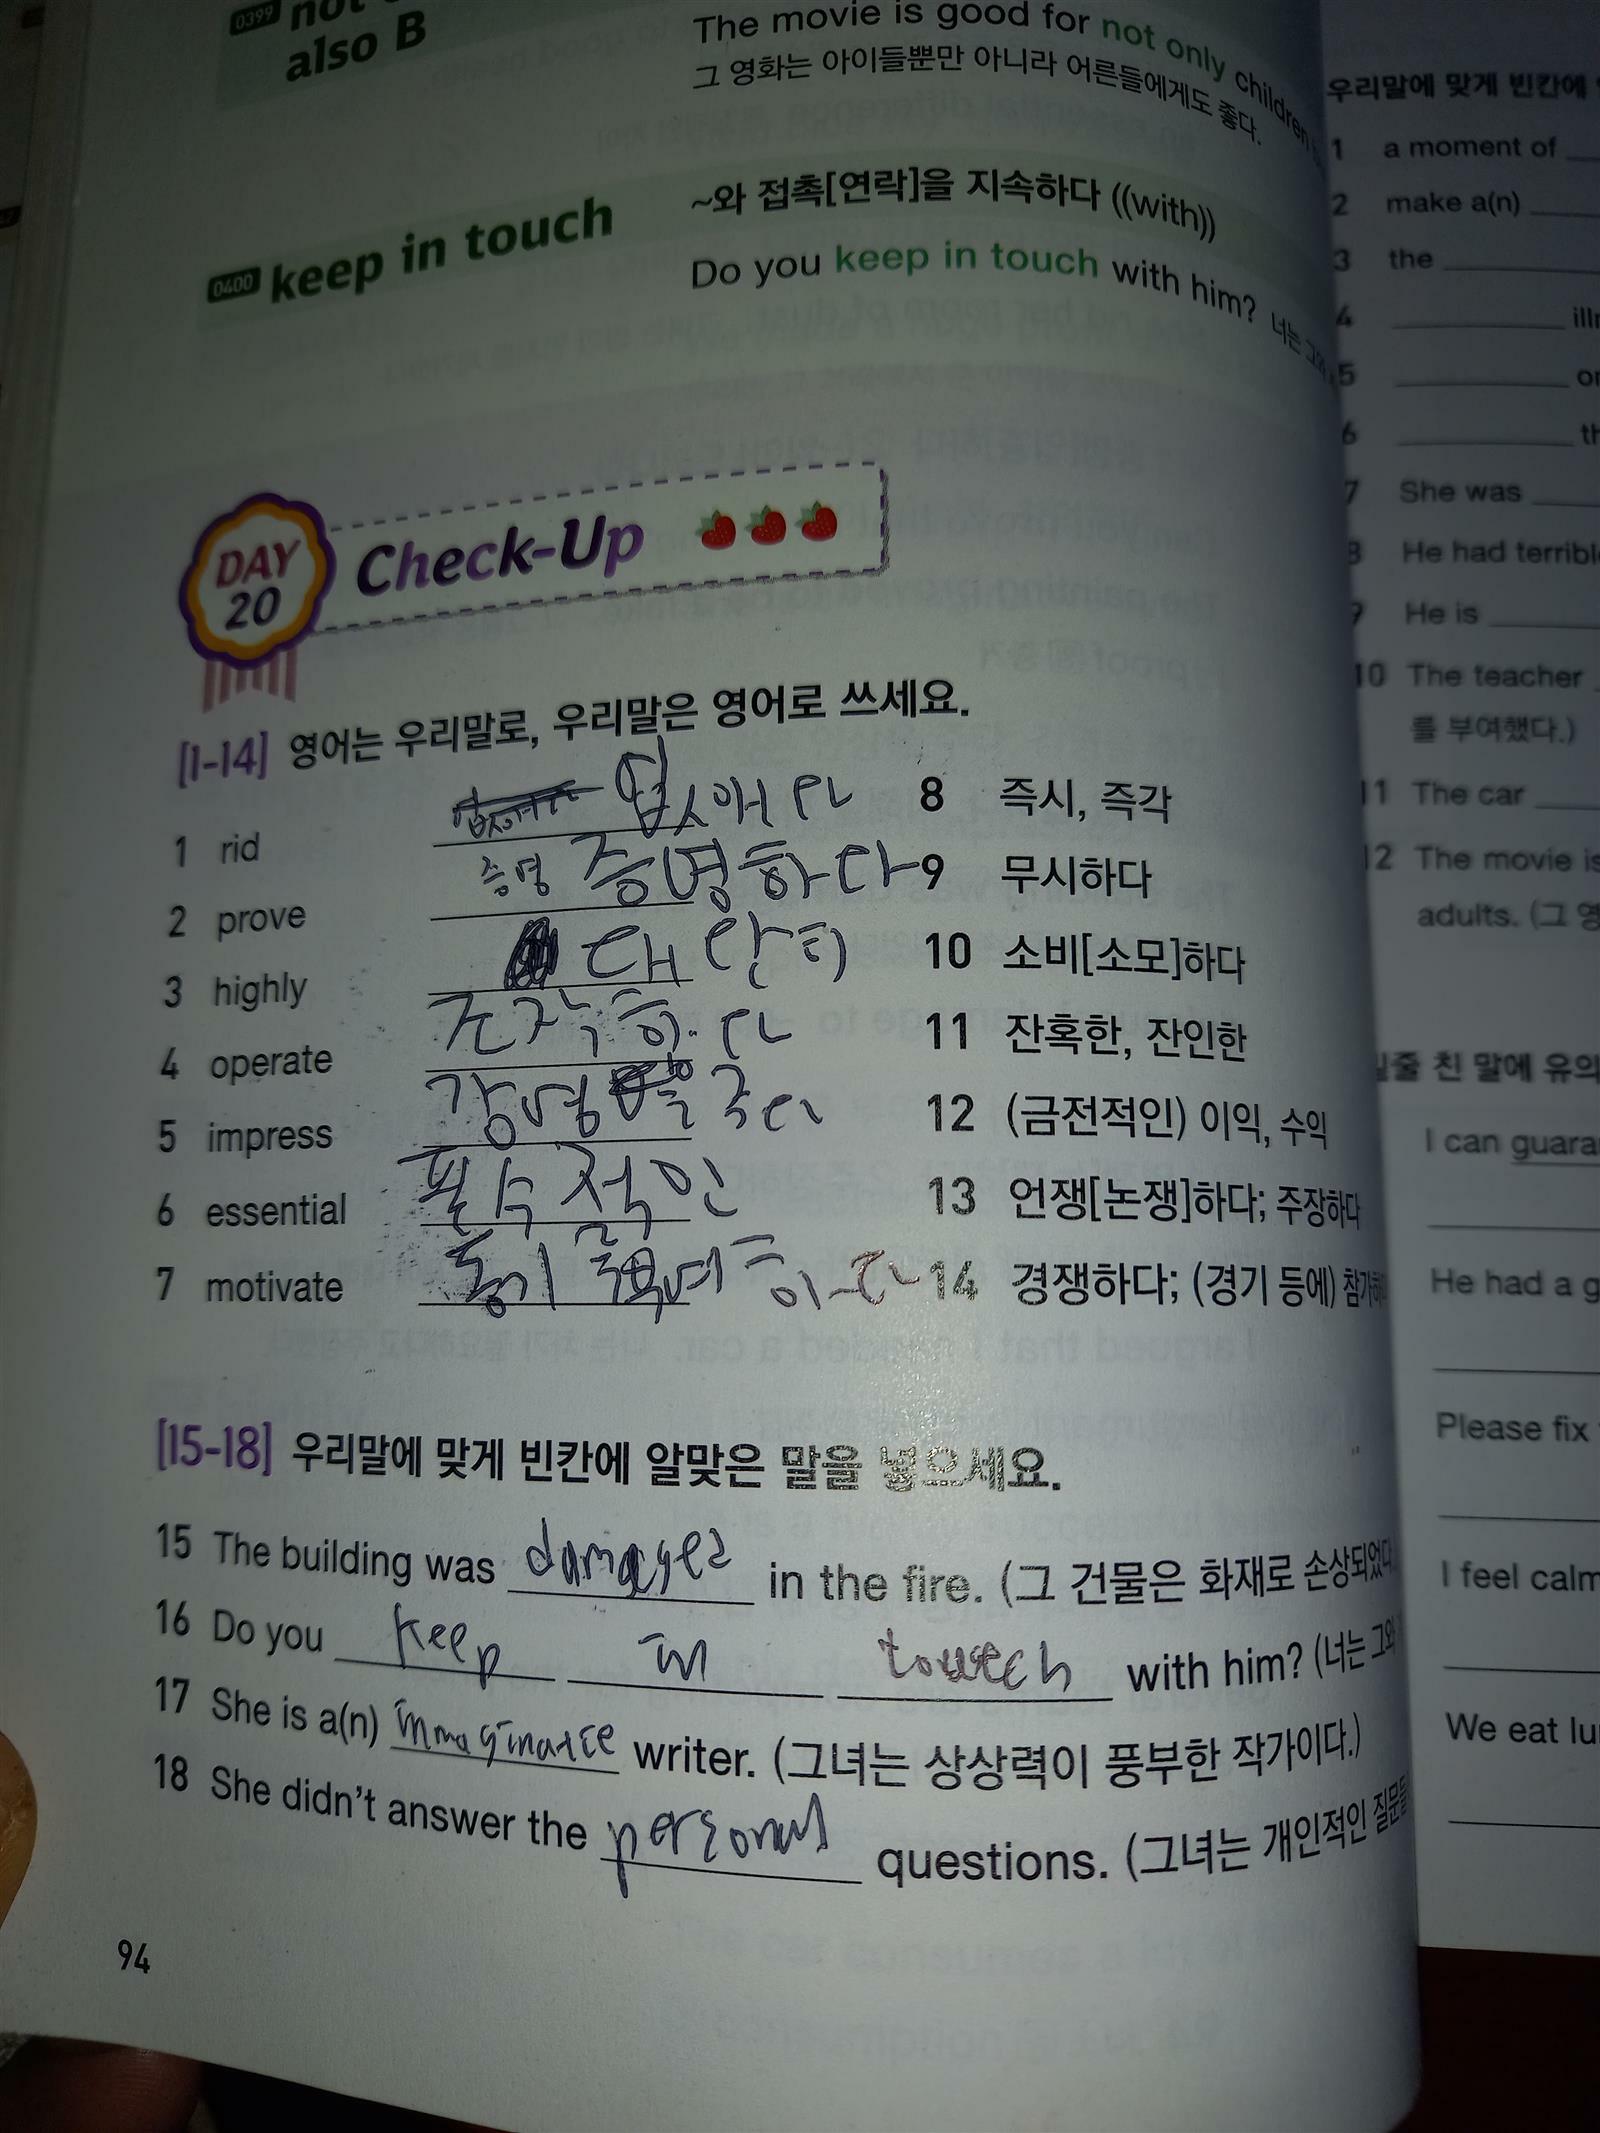 0399 not
also B
The movie is good for not only children
그 영화는 아이들뿐만 아니라 어른들에게도 좋다.
0400 keep in touch
~와 접촉[연락]을 지속하다 ((with))
Do you keep in touch with him? 너는
DAY 20 Check-Up
[1-14] 영어는 우리말로, 우리말은 영어로 쓰세요.
1 rid 없애다
2 prove 증명 증명하다
3 highly 대단히
4 operate 조작하다
5 impress 감명을 주다
6 essential 필수적인
7 motivate 동기 부여하다
8 즉시, 즉각
9 무시하다
10 소비[소모]하다
11 잔혹한, 잔인한
12 (금전적인) 이익, 수익
13 언쟁[논쟁]하다; 주장하다
14 경쟁하다; (경기 등에)
[15-18] 우리말에 맞게 빈칸에 알맞은 말을 넣으세요.
15 The building was damaged in the fire. (그 건물은 화재로 손상되었다.
16 Do you keep in touch with him? (너는 그와
17 She is a(n) writer. (그녀는 상상력이 풍부한 작가이다.)
18 She didn't answer the personal questions. (그녀는 개인적인 질문들
94
우리말에 맞게 빈칸에
1 a moment of
2 make a(n)
3 the
4
5
6
7 She was
8 He had
9 He is
10 The teacher
를 부여했다.)
11 The car
12 The movie is
adults. (그
줄 친 말에 유의
I can
He had a
Please fix
I feel calm
We eat